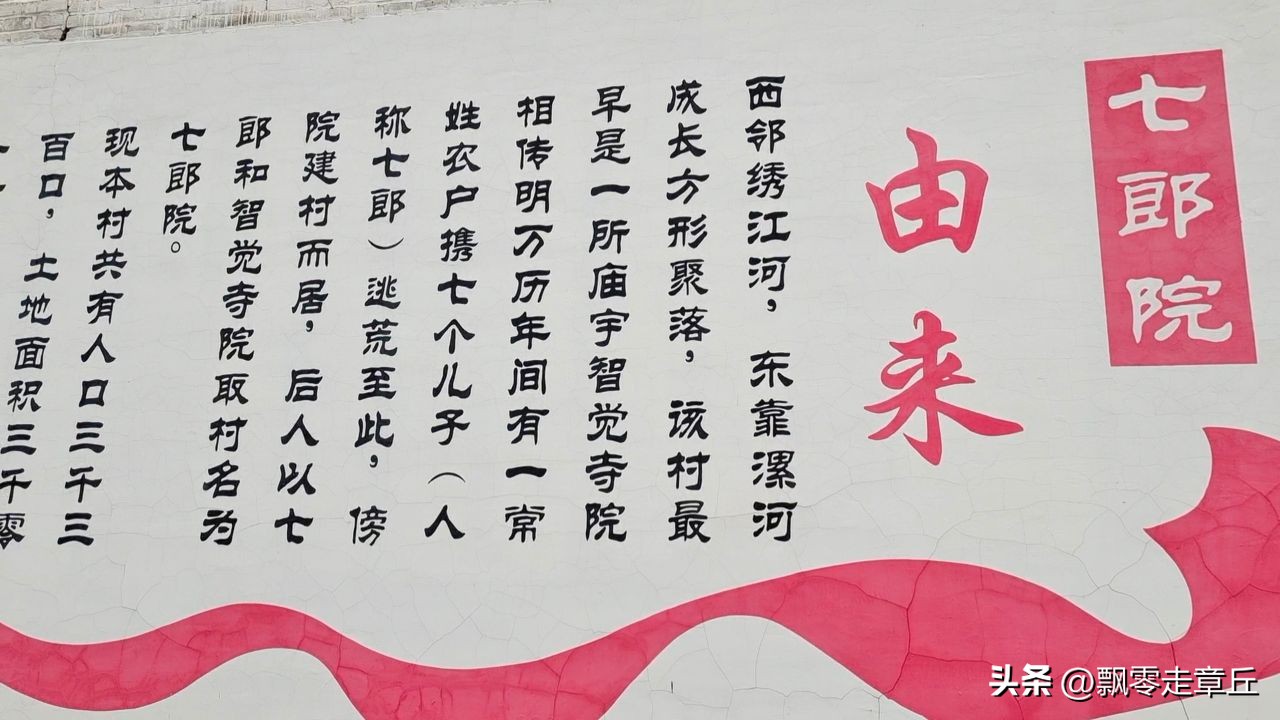 七郎院
由来
西邻绣江河，东靠漯河
成长方形聚落，该村最
早是一所庙宇智觉寺院
相传明万历年间有一常
姓农户携七个儿子（人
称七郎）逃荒至此，傍
院建村而居，后人以七
郎和智觉寺院取村名为
七郎院。
现本村共有人口三千三
百口，土地面积三千零
头条 @飘零走章丘